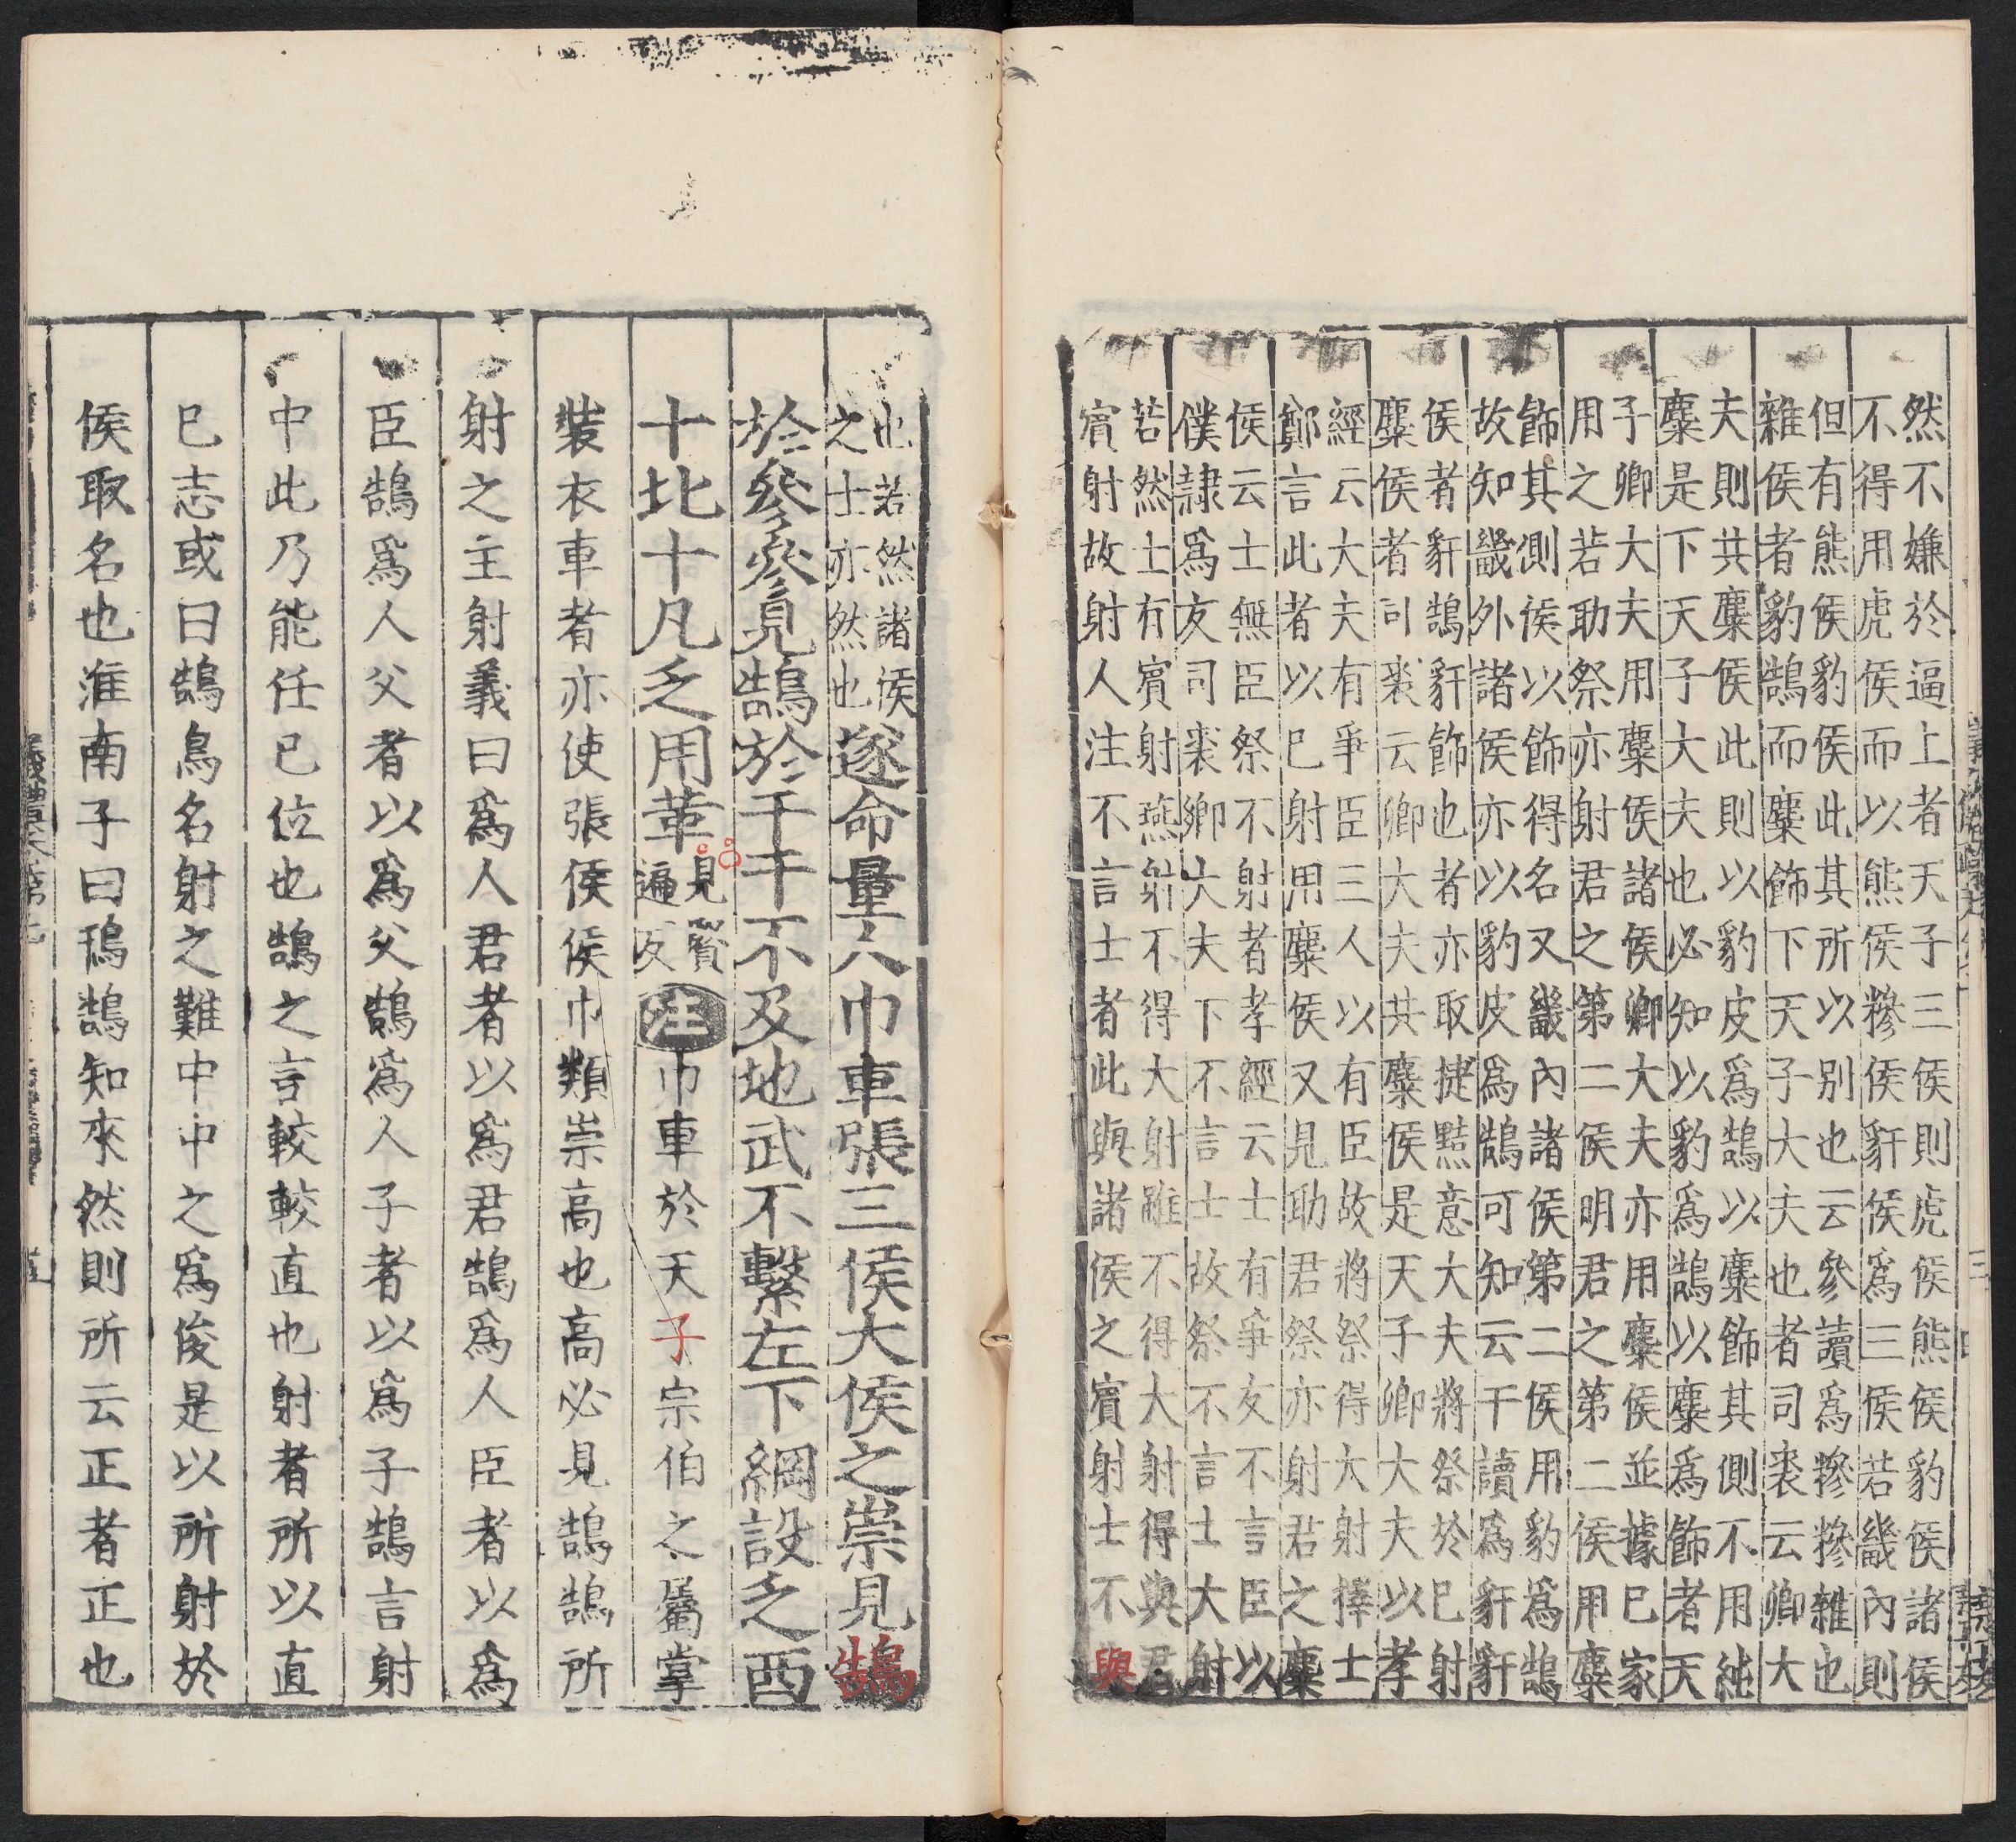 然不嫌於逼上者天子三侯則虎侯熊侯豹侯諸侯
不得用虎侯而以熊侯糝侯豻侯爲三侯若畿內則
但有熊侯豹侯此其所以别也云參讀爲糝糝雜也
雜侯者豹鵠而麋飾下天子大夫也者司裘云卿大
夫則共麋侯此則以豹皮爲鵠以麋飾其側不用純
麋是下天子大夫也必知以豹爲鵠以麋爲飾者天
子卿大夫用麋侯諸侯卿大夫亦用麋侯並據已家
用之若助祭亦射君之第二侯明君之第二侯用麋
飾其側侯以飾得名又畿內諸侯第二侯用豹爲鵠
故知畿外諸侯亦以豹皮爲鵠可知云干讀爲豻豻
侯者豻鵠豻飾也者亦取捷黠意大夫將祭於已射
麋侯者司裘云卿大夫共麋侯是天子卿大夫以孝
經云大夫有爭臣三人以有臣故將祭得大射擇士
鄭言此者以巳射用麋侯又見助君祭亦射君之麋
侯云士無臣祭不射者孝經云士有爭友不言臣以
僕隷爲友司裘卿大夫下不言士故祭不言士大射
若然士有賓射燕射不得大射雖不得大射得與君
賓射故射人注不言士者此與諸侯之賓射士不與
也若然諸侯
之士亦然也
遂命量人巾車張三侯大侯之崇見鵠
於參參見鵠於干干不及地武不繫左下綱設乏西
十北十凡乏用革
見賢
遍反
注
巾車於天子宗伯之屬掌
裝衣車者亦使張侯侯巾類崇高也高必見鵠鵠所
射之主射義曰爲人君者以爲君鵠爲人臣者以爲
臣鵠爲人父者以爲父鵠爲人子者以爲子鵠言射
中此乃能任已位也鵠之言較較直也射者所以直
巳志或曰鵠鳥名射之難中中之爲俊是以所射於
侯取名也淮南子曰鳱鵠知來然則所云正者正也